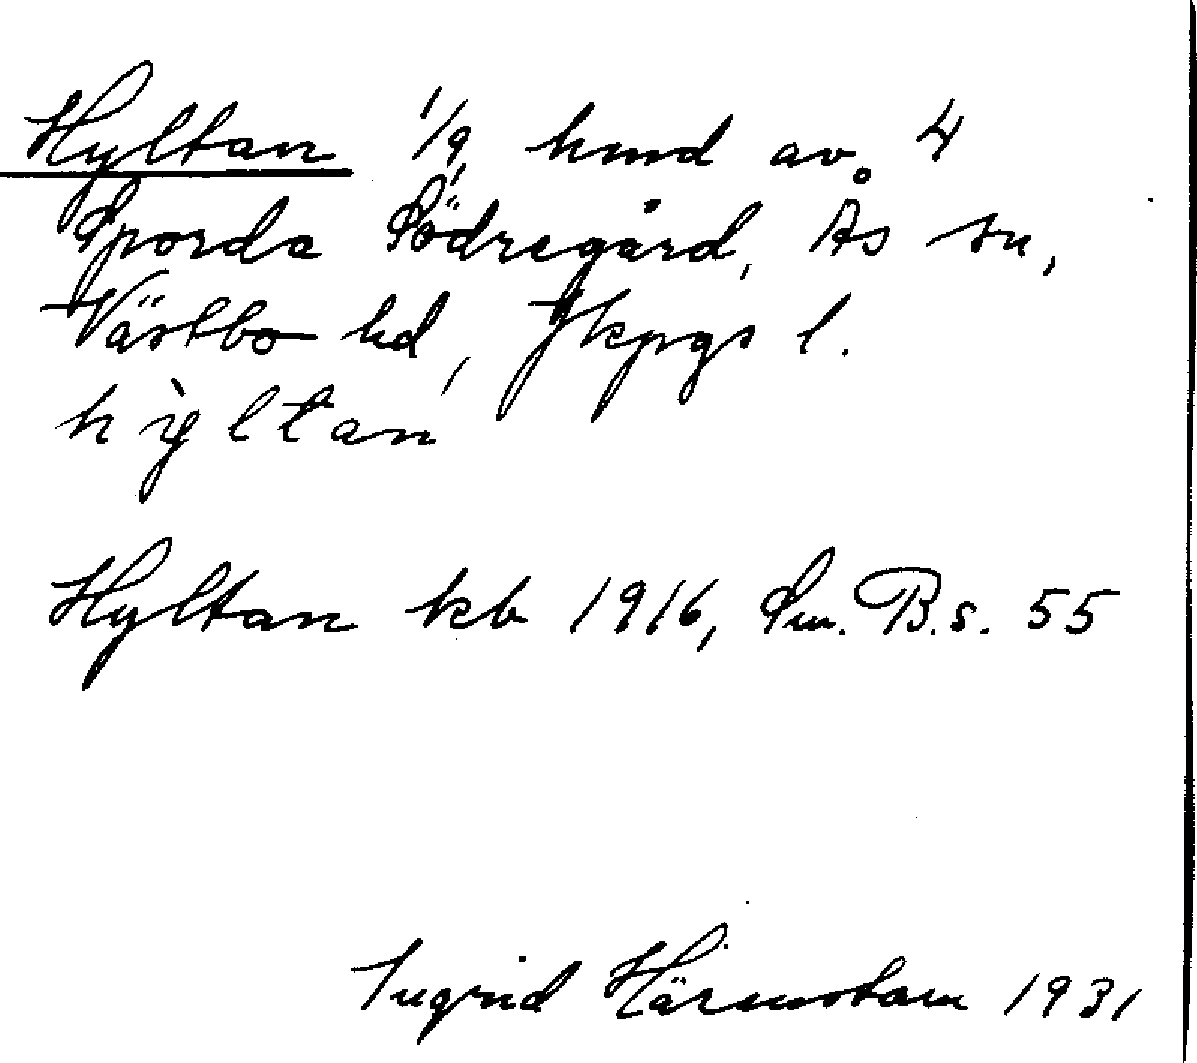 Hyltan 1/9, hmd av 4
Sporda Södregård, Ås sn,
Västbo hd, Jkpgs l.
hỳltan
Hyltan kb 1916, Sm. B.s. 55
Ingrid Härenstam 1931